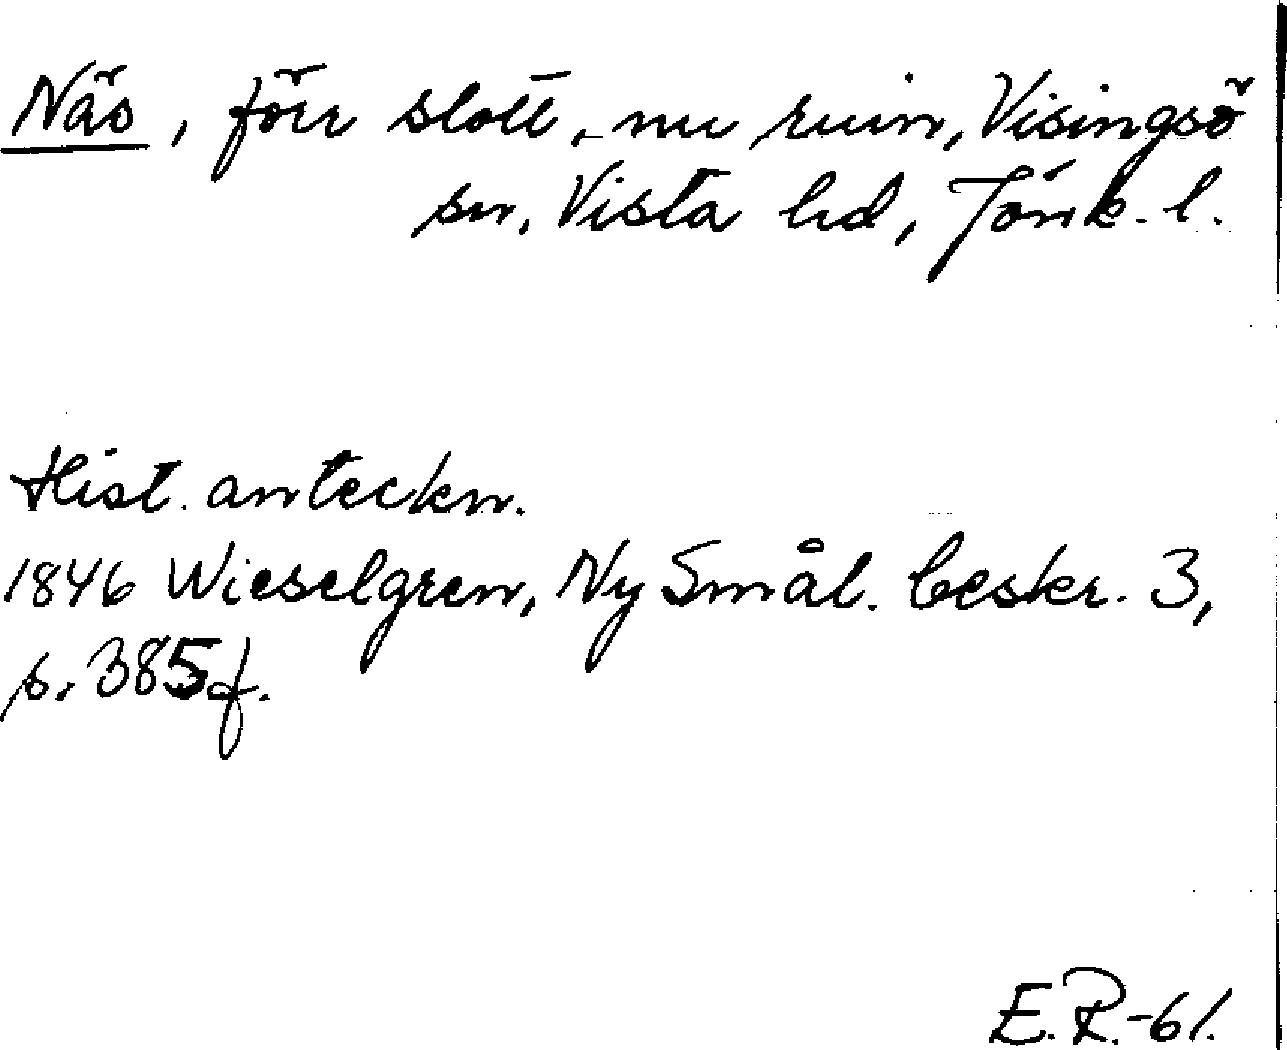 Näs, förr slott, nu ruin, Visingsö
sn, Vista hd, Jönk. l.
Hist. anteckn.
1846 Wieselgren, Ny Smål. beskr. 3,
s. 385 f.
E.R.-61.